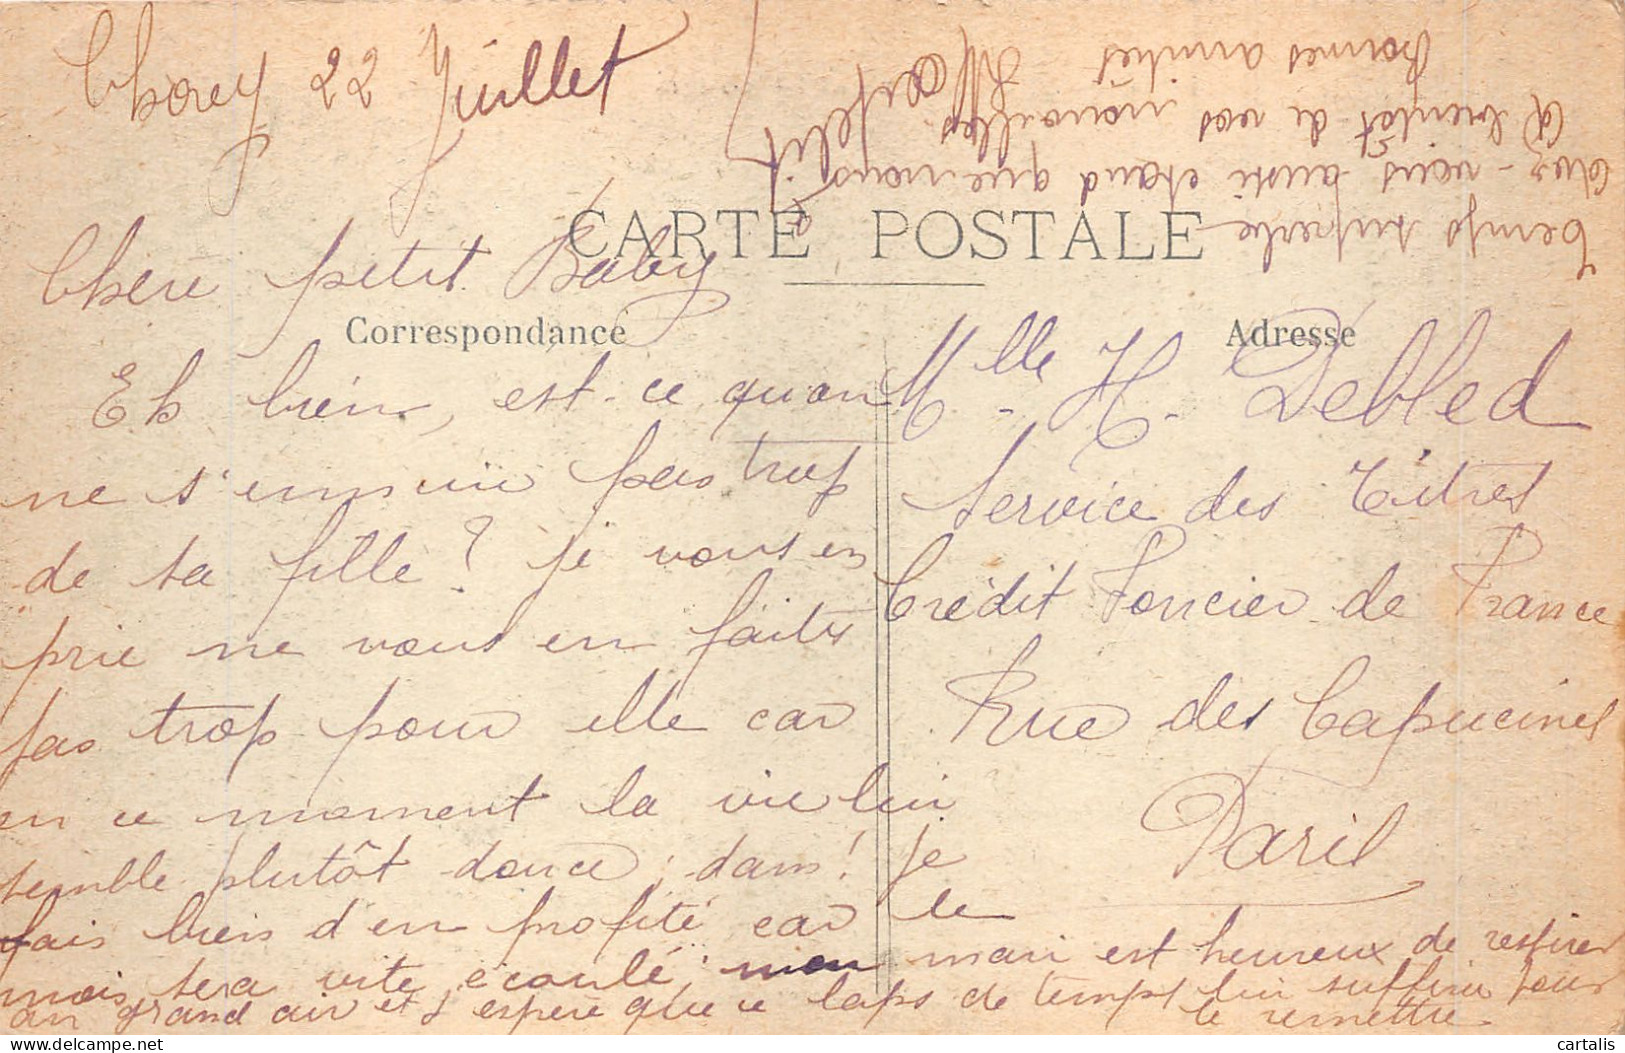 Chorey 22 Juillet
CARTE POSTALE
Correspondance
Adresse
Chère petit Baby
Eh bien, est-ce qu'on
ne s'ennuie pas trop
de sa fille? je vous en
prie ne vous en faites
pas trop pour elle car
en ce moment la vie lui
semble plutôt douce; dam! je
fais bien d'en profité car le
mois sera vite écoulé mon mari est heureux de respirer
au grand air et j'espère que ce laps de temps lui suffira pour
le remettre.
Temps superbe
avez-vous aussi
A bientôt de vos nouvelles
Bonnes amitiés
Mlle H. Debled
Service des Titres
Crédit Foncier de France
Rue des Capucines
Paris
cartalis